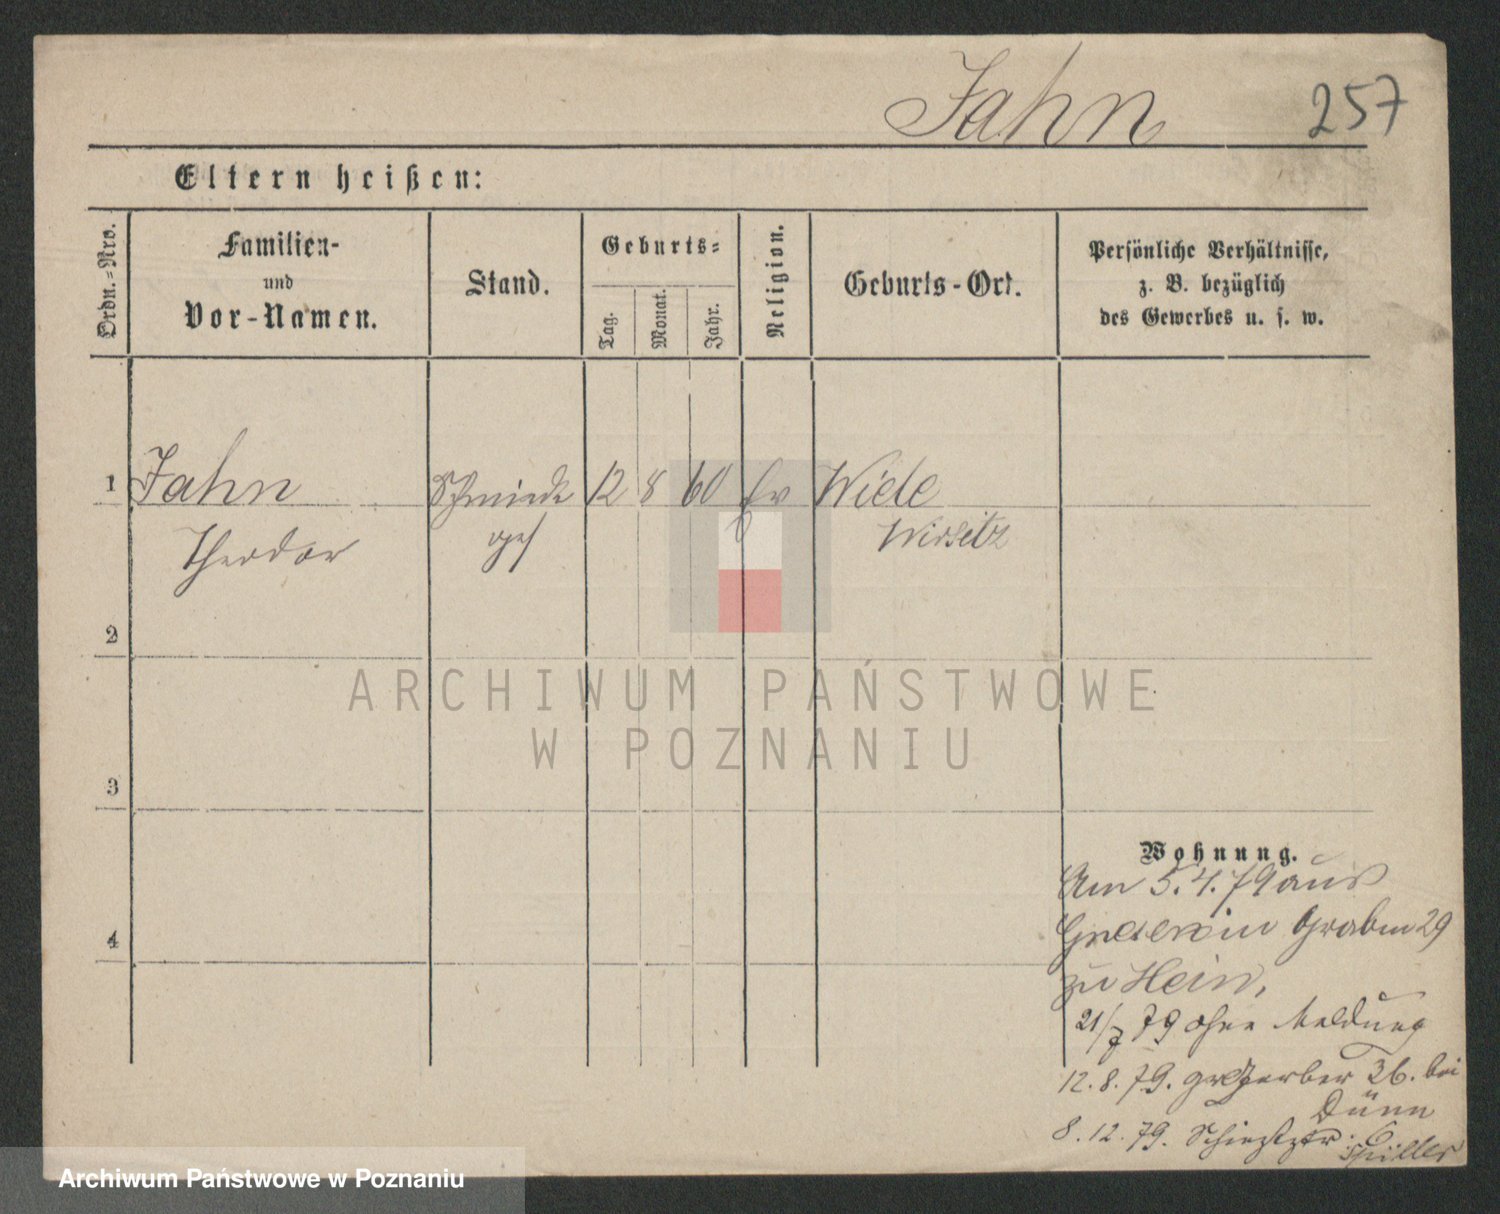 Jahn 257
Eltern heißen:
Ordn.-Nro.
Familien-
und
Vor-Namen.
Stand.
Geburts-
Tag.
Monat.
Jahr.
Religion.
Geburts-Ort.
Persönliche Verhältnisse,
z. B. bezüglich
des Gewerbes u. s. w.
1 Jahn Schmiede 12 8 60 Ev Wiele
Theodor ges Wirsitz
2
3
4
Wohnung.
Am 5.4.79 aus
Graben 29
zu Hein,
21/7 79 ohne Meldung
12.8.79. gr Gerber 36. bei
Dünn
8.12.79. Schießstr. 6
Müller
ARCHIWUM PAŃSTWOWE
W POZNANIU
Archiwum Państwowe w Poznaniu